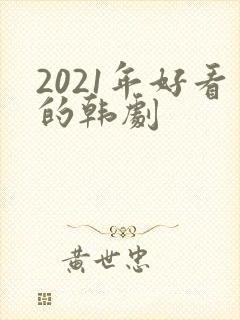 2021年好看
的韩剧
黄世忠